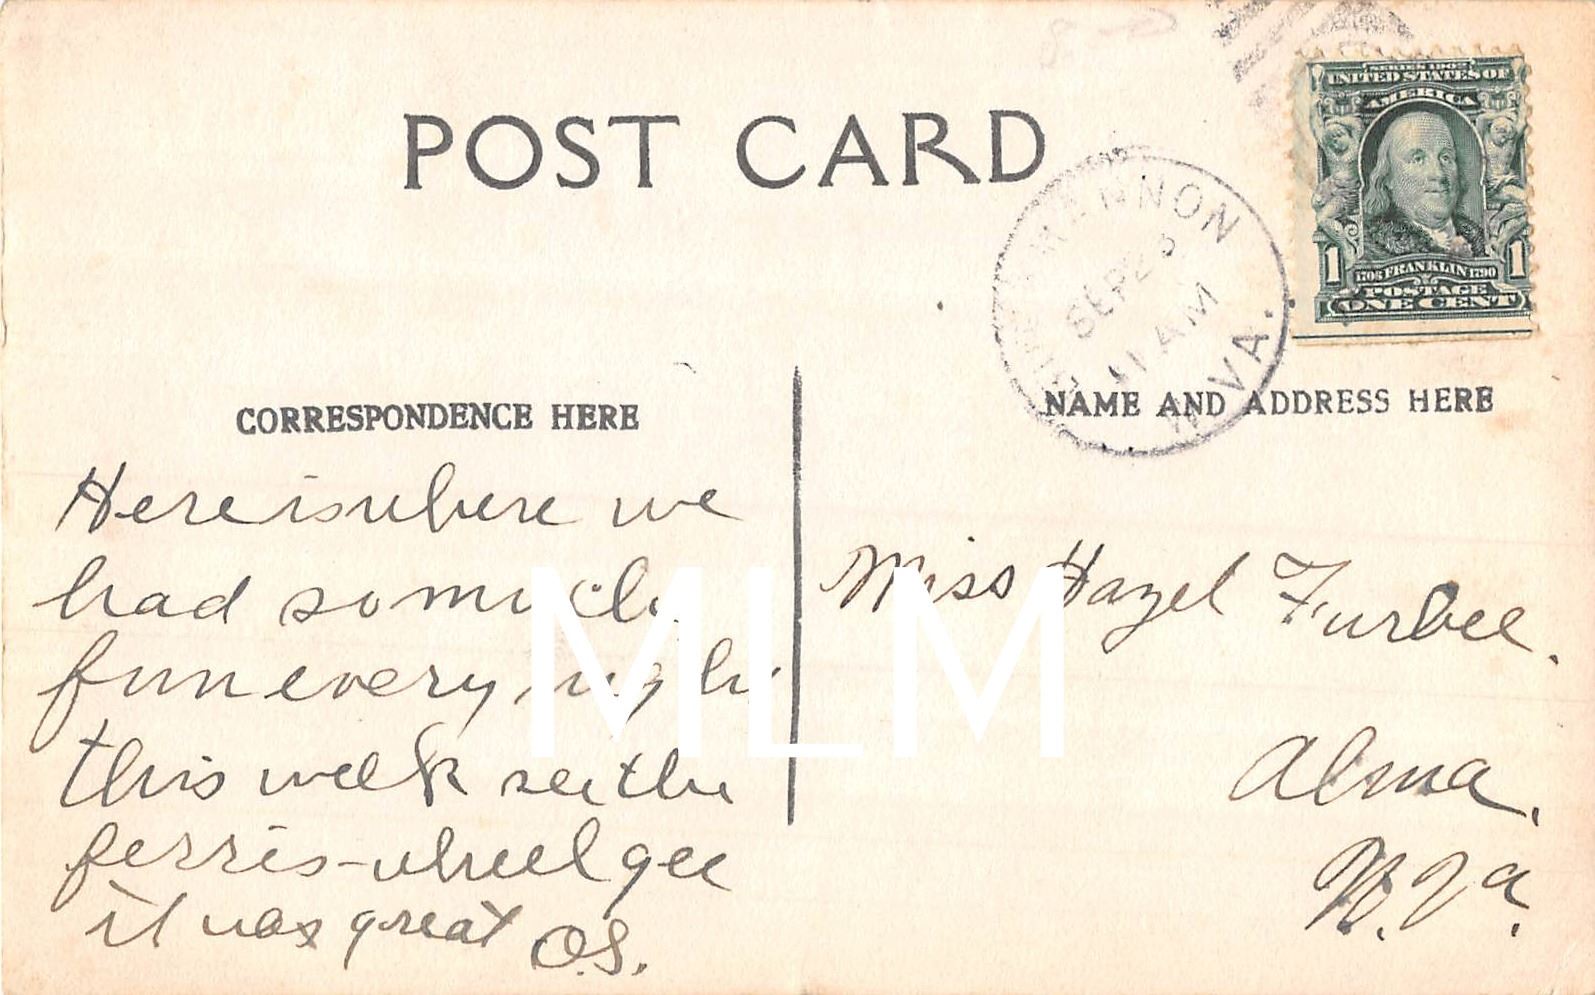 POST CARD
SERIES 1902
UNITED STATES OF
AMERICA
1 1
1706 FRANKLIN 1790
POSTAGE
ONE CENT
MANNINGTON
SEP 23
11 AM
W. VA.
CORRESPONDENCE HERE
NAME AND ADDRESS HERE
Here is where we
had so much
fun every night
this week see the
ferris-wheel gee
it was great O.S.
Miss Hazel Furbee.
Alma,
W. Va.
MLM